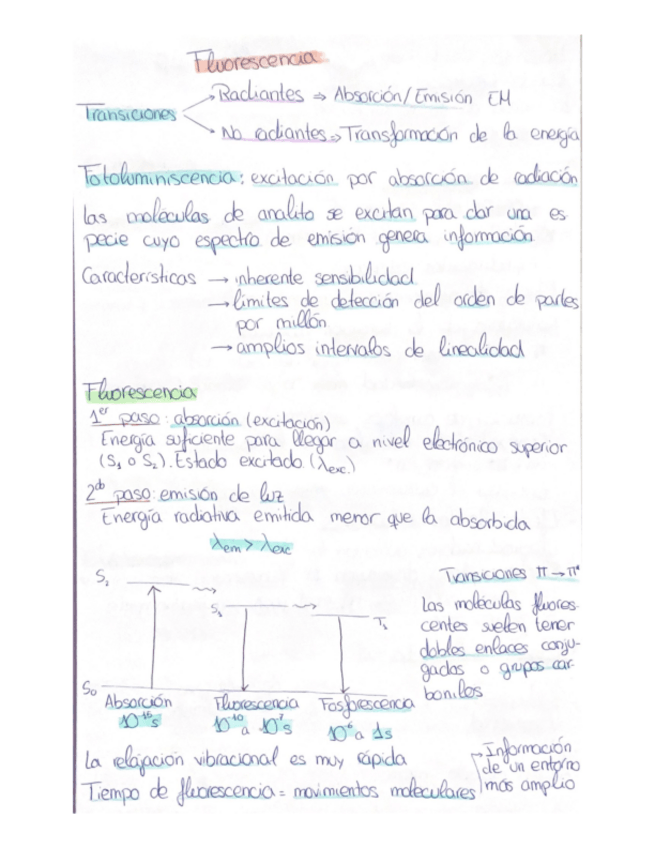 Fluorescencia
Transiciones
Radiantes ⇒ Absorción/Emisión EM
No radiantes ⇒ Transformación de la energía
Fotoluminiscencia: excitación por absorción de radiación
Las moléculas de analito se excitan para dar una es
pecie cuyo espectro de emisión genera información
Características → inherente sensibilidad
→ límites de detección del orden de partes
por millón
→ amplios intervalos de linealidad
Fluorescencia
1er paso: absorción (excitación)
Energía suficiente para llegar a nivel electrónico superior
(S1 o S2). Estado excitado (λexc)
2do paso: emisión de luz
Energía radiativa emitida menor que la absorbida
λem > λexc
S2
S1
T1
S0
Absorción Fluorescencia Fosforescencia
10^-15 s 10^-10 a 10^-7 s 10^-6 a 1s
Transiciones π → π*
Las moléculas fluores-
centes suelen tener
dobles enlaces conju-
gados o grupos car-
bonilos
La relajación vibracional es muy rápida
Tiempo de fluorescencia = movimientos moleculares
→ Información
de un entorno
más amplio